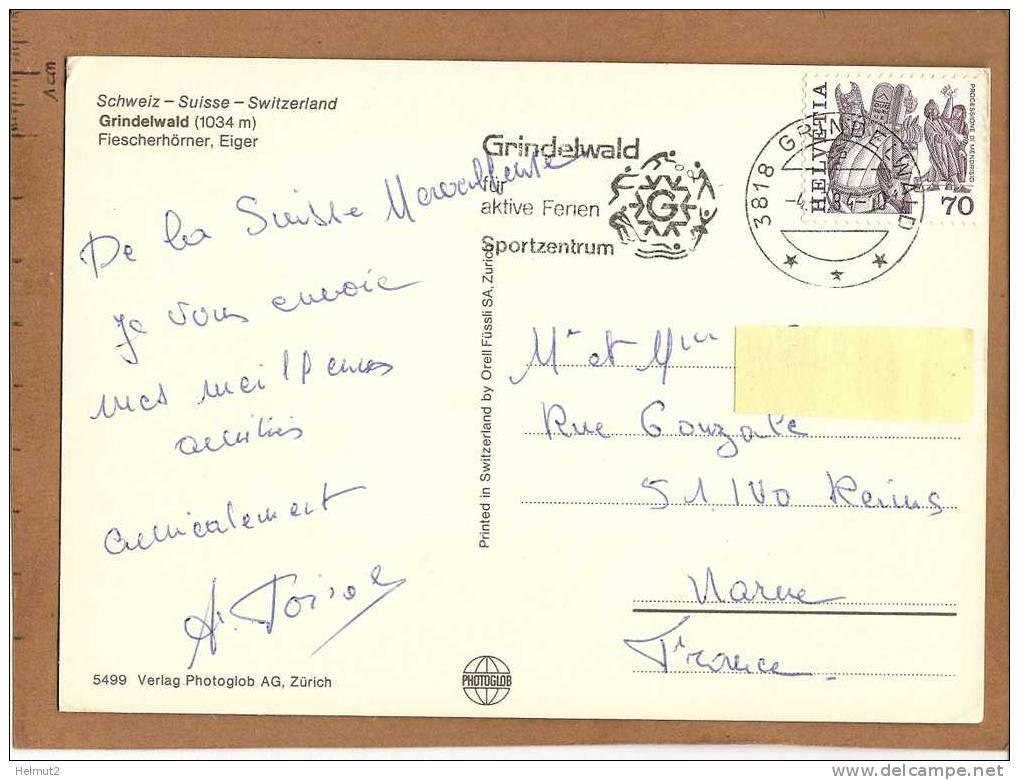 1 cm
Schweiz – Suisse – Switzerland
Grindelwald (1034 m)
Fiescherhörner, Eiger
De la Suisse Merveilleuse
je vous envoie
mes meilleures
amitiés
amicalement
5499 Verlag Photoglob AG, Zürich
PHOTOGLOB
Printed in Switzerland by Orell Füssli SA, Zurich
Grindelwald
für
aktive Ferien
G
Sportzentrum
3818 GRINDELWALD
HELVETIA
PROCESSIONE DI MENDRISIO
70
Mr et Mme
Rue Gonzale
51100 Reims
Marne
France
Helmut2
delcampe.net